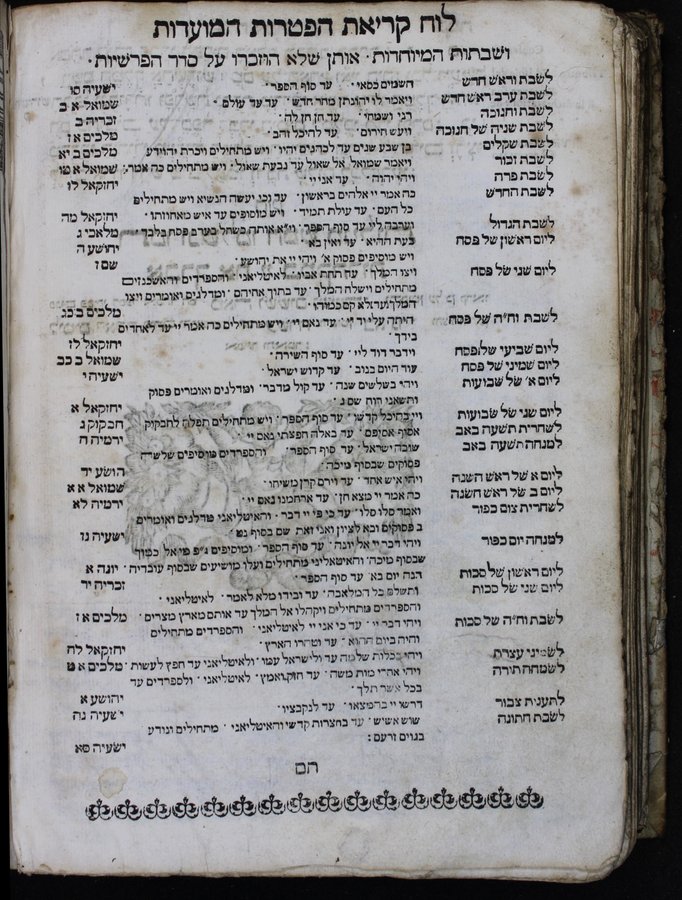 לוח קריאת הפטרות המועדות
ושבתות המיוחדות · אותן שלא הוזכרו על סדר הפרשיות ·
לשבת וראש חדש השמים כסאי · עד סוף הספר · ישעיה סו
לשבת ערב ראש חדש ויאמר לו יהונתן מחר חדש · עד עד עולם · שמואל א כ
לשבת וחנוכה רני ושמחי · עד חן חן לה · זכריה ב
לשבת שניה של חנוכה ויעש חירום · עד להיכל זהב · מלכים א ז
לשבת שקלים בן שבע שנים עד לכהנים יהיו · ויש מתחילים ויכרת יהוידע מלכים ב יא
לשבת זכור ויאמר שמואל אל שאול עד גבעת שאול · ויש מתחילים כה אמר · שמואל א טו
לשבת פרה ויהי יהוה · עד אני יי · יחזקאל לו
לשבת החדש כה אמר יי אלהים בראשון · עד וכי יעשה הנשיא ויש מתחילים
כל העם · עד עולת תמיד · ויש מוסיפים עד איש מאחוזתו · יחזקאל מה
לשבת הגדול וערבה ליי עד סוף הספר · מלאכי ג
ליום ראשון של פסח בעת ההיא · עד ואין בא · יהושע ה
ויש מוסיפים פסוק א׳ ויהי יי את יהושע · שם ו
ליום שני של פסח ויצו המלך · עד תחת אביו · לאיטליאני · והספרדים והאשכנזים
מתחילים וישלח המלך · עד בתוך אחיהם · ומדלגים ואומרים ויצו
המלך ועד לא קם כמוהו · מלכים ב כג
לשבת וח״ה של פסח היתה עלי יד יי · עד נאם יי · ויש מתחילים כה אמר יי עד לאחדים
בידך · יחזקאל לז
ליום שביעי של פסח וידבר דוד ליי · עד סוף השירה · שמואל ב כב
ליום שמיני של פסח עוד היום בנוב · עד קדוש ישראל · ישעיה י
ליום א׳ של שבועות ויהי בשלשים שנה · עד קול מדבר · ומדלגים ואומרים פסוק
ותשאני רוח שם ג · יחזקאל א
ליום שני של שבועות ויי בהיכל קדשו · עד סוף הספר · ויש מתחילים תפלה לחבקוק חבקוק ג
לשחרית תשעה באב אסוף אסיפם · עד באלה חפצתי נאם יי · ירמיה ח
למנחה תשעה באב שובה ישראל · עד סוף הספר · והספרדים מוסיפים שלשה
פסוקים שבסוף מיכה · הושע יד
ליום א של ראש השנה ויהי איש אחד · עד וירם קרן משיחו · שמואל א א
ליום ב של ראש השנה כה אמר יי מצא חן · עד ארחמנו נאם יי · ירמיה לא
לשחרית צום כפור ואמר סלו סלו · עד כי פי יי דבר · והאיטליאני מדלגים ואומרים
ב פסוקים ובא לציון ואני זאת שם בסוף נט · ישעיה נז
למנחה יום כפור ויהי דבר יי אל יונה · עד סוף הספר · ומוסיפים ג״פ מי אל כמוך
שבסוף מיכה והאיטליאני מתחילים ועלו מושיעים שבסוף עובדיה · יונה א
ליום ראשון של סכות הנה יום בא · עד סוף הספר · זכריה יד
ליום שני של סכות ותשלם כל המלאכה · עד ובידו מלא לאמר · לאיטליאני ·
והספרדים מתחילים ויקהלו אל המלך עד אותם מארץ מצרים · מלכים א ז
לשבת וח״ה של סכות ויהי דבר יי · עד כי אני יי לאיטליאני · והספרדים מתחילים
והיה ביום ההוא · עד וטהרו הארץ · יחזקאל לח
לשמיני עצרת ויהי ככלות שלמה עד ולישראל עמו · ולאיטליאני עד חפץ לעשות · מלכים א ט
לשמחת תורה ויהי אחרי מות משה · עד חזק ואמץ · לאיטליאני · ולספרדים עד
בכל אשר תלך · יהושע א
לתענית צבור דרשו יי בהמצאו · עד לנקבציו · ישעיה נה
לשבת חתונה שוש אשיש · עד בחצרות קדשי והאיטליאני · מתחילים ונודע
בגוים זרעם : ישעיה סא
תם